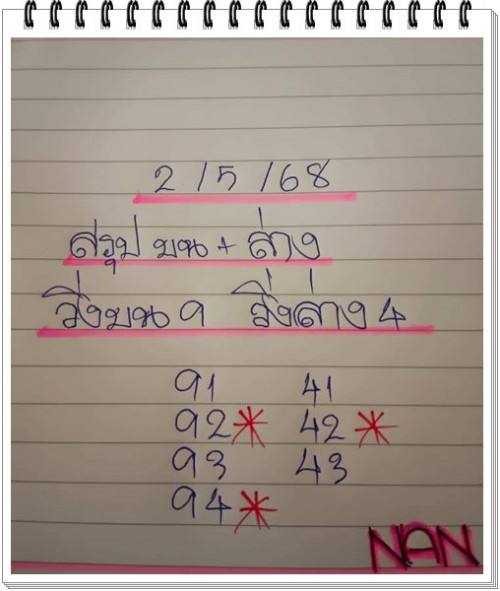 2/5/68
สรุป บน + ล่าง
วิ่งบน 9 วิ่งล่าง 4
91 41
92* 42*
93 43
94*
NAN